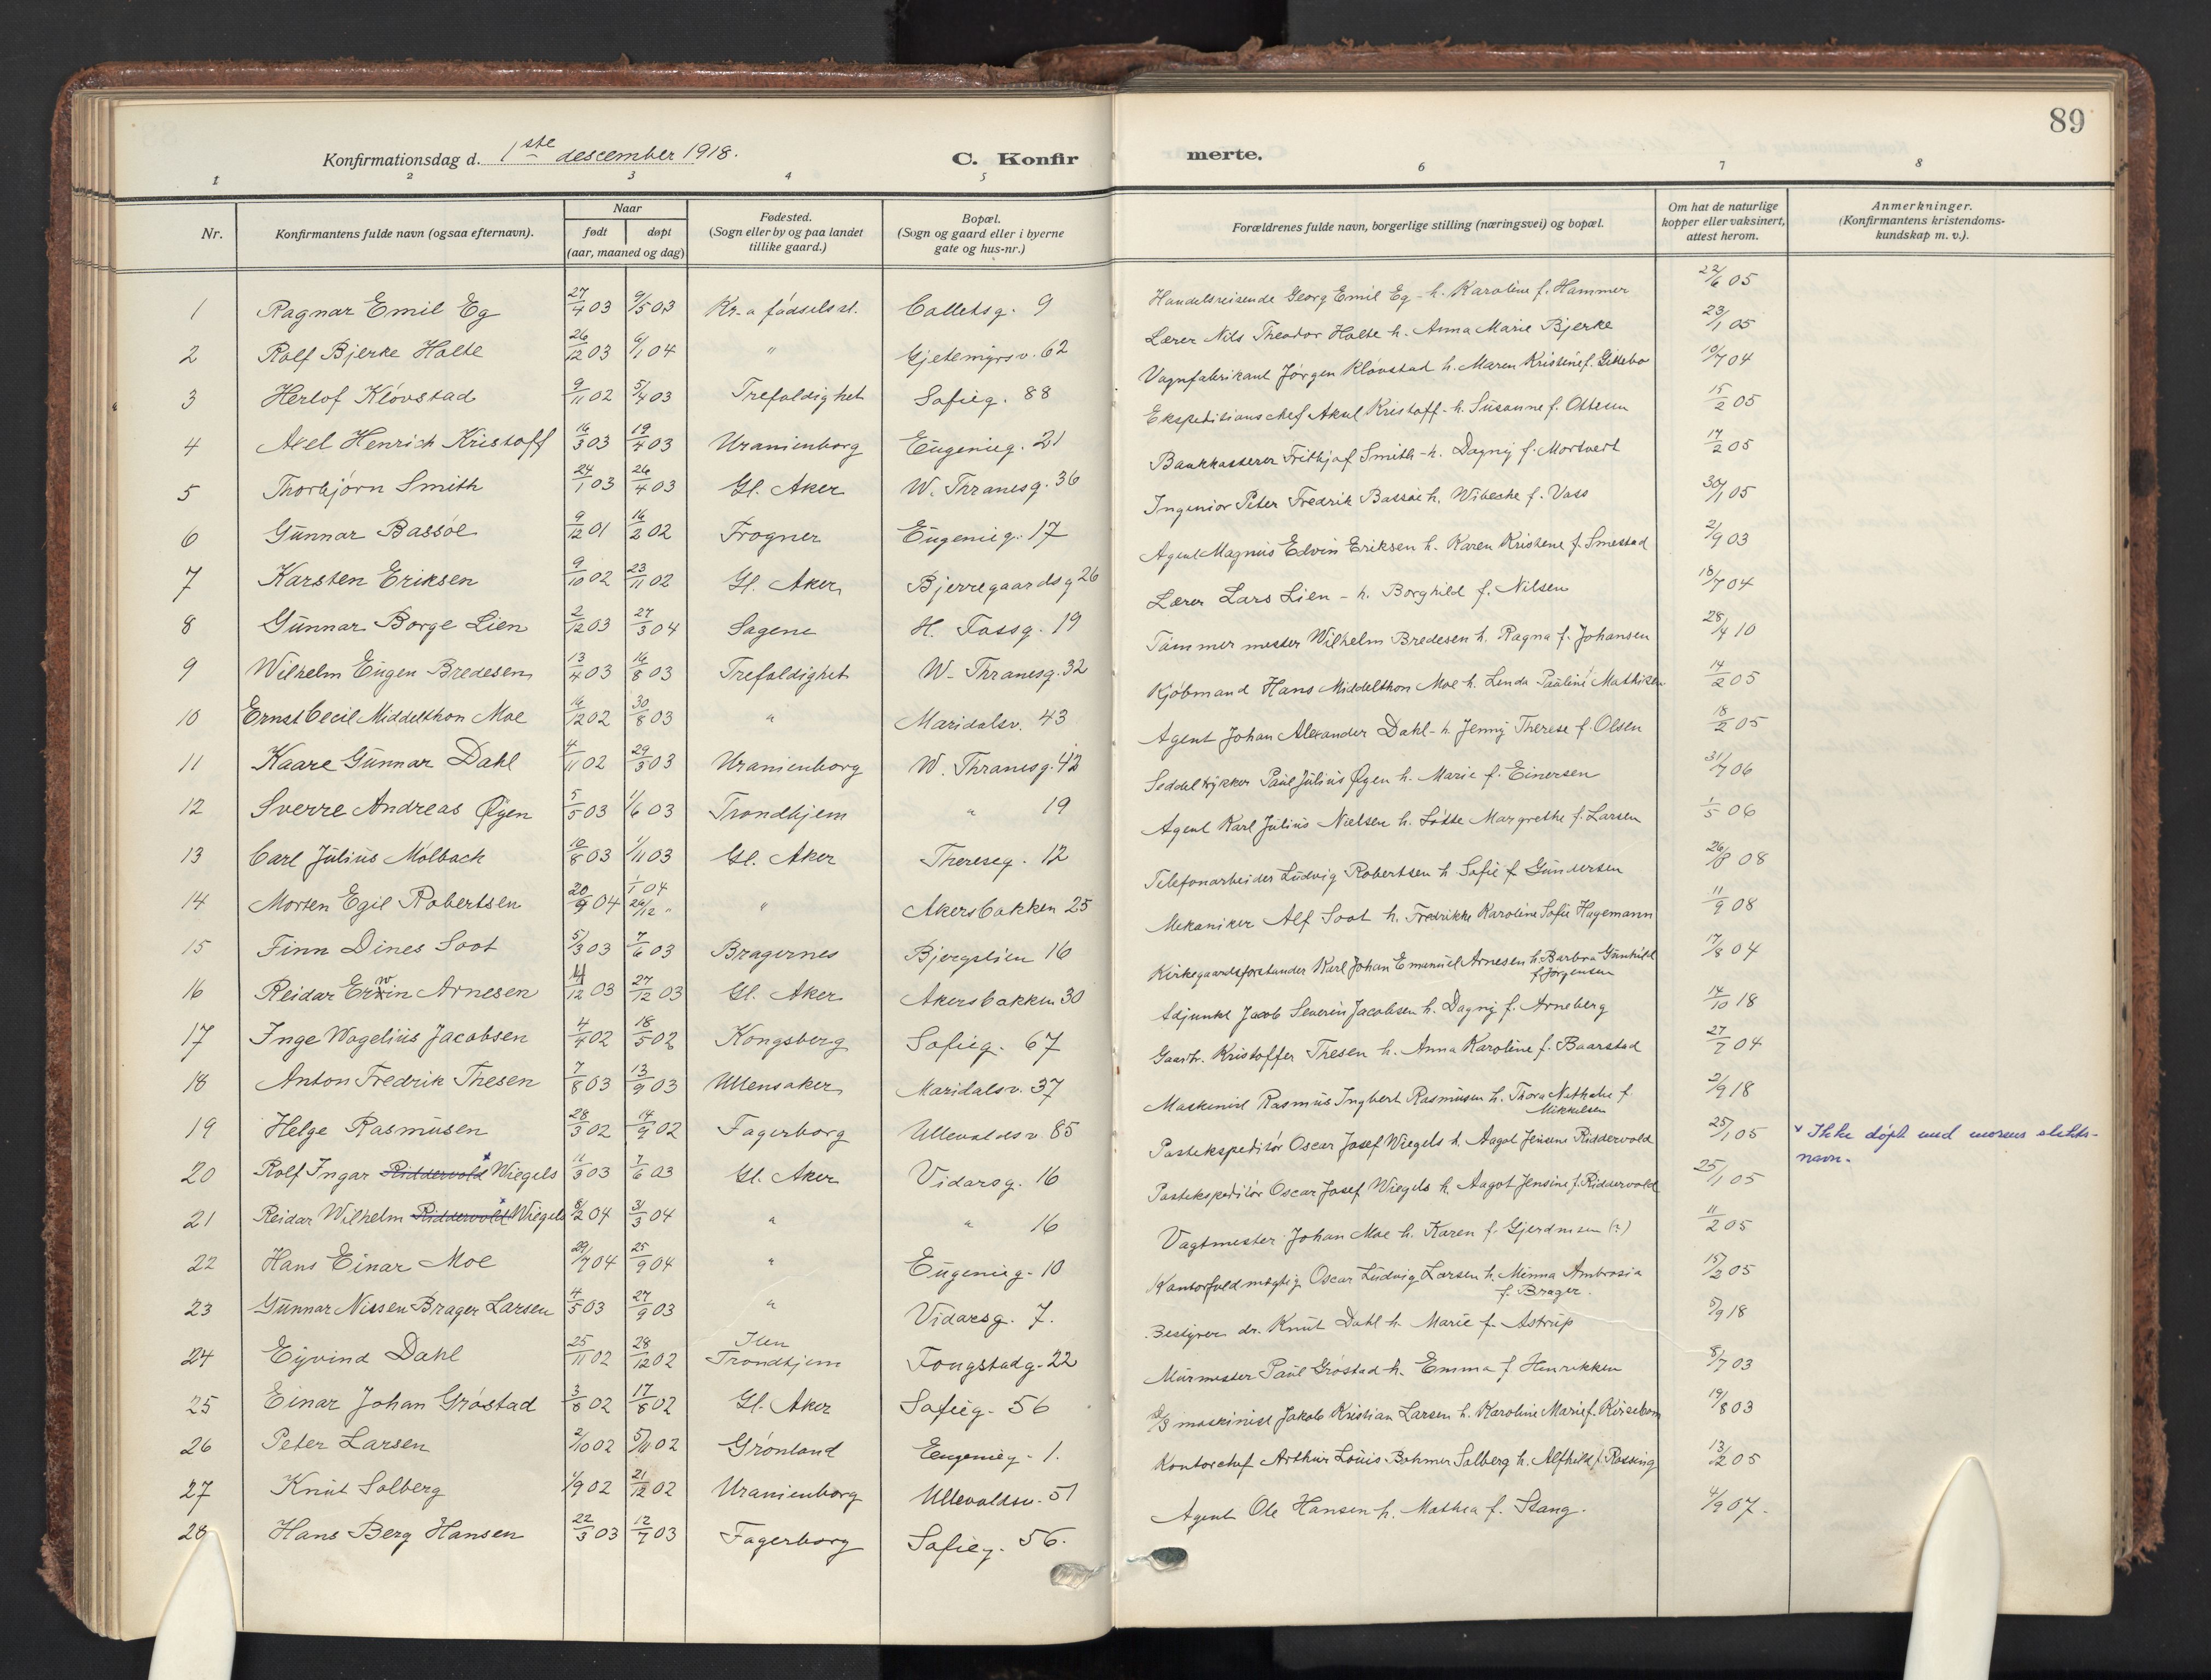 89
Konfirmationsdag d. 1ste desember 1918. C. Konfirmerte.
1 2 3 4 5 6 7 8
Nr. Konfirmantens fulde navn (ogsaa efternavn). Naar født døpt (aar, maaned og dag) Fødested. (Sogn eller by og paa landet tillike gaard.) Bopæl. (Sogn og gaard eller i byerne gate og hus-nr.) Forældrenes fulde navn, borgerlige stilling (næringsvei) og bopæl. Om hat de naturlige kopper eller vaksinert, attest herom. Anmerkninger. (Konfirmantens kristendomskundskap m. v.).
1 Ragnar Emil Eg 27/4 03 9/5 03 Kr.a fødselsst. Colletsg. 9 Handelsreisende Georg Emil Eg - h. Karoline f. Hammer 22/6 05
2 Rolf Bjerke Holte 26/12 03 6/1 04 " Gjetemyrsv. 62 Lærer Nils Theodor Holte h. Anna Marie Bjerke 23/1 05
3 Herlof Kløvstad 9/11 02 5/4 03 Trefoldighet Sofieg. 88 Vognfabrikant Jørgen Kløvstad h. Maren Kristine f. 19/7 04
4 Axel Henrich Kristoff 16/3 03 19/4 03 Uranienborg Eugenieg. 21 Ekspeditionschef Aksel Kristoff - h. Susanne f. Ottesen 15/2 05
5 Thorbjørn Smith 24/1 03 26/4 03 Gl. Aker W. Thranesg. 36 Bankkasserer Frithjof Smith - h. Dagny f. Mortvert 17/2 05
6 Gunnar Bassøe 9/12 01 16/2 02 Frogner Eugenieg. 17 Ingeniør Peter Fredrik Bassøe h. Wibecke f. Vass 30/1 05
7 Karsten Eriksen 9/10 02 23/11 02 Gl. Aker Bjerregaardsg 26 Agent Magnus Edvin Eriksen h. Karen Kristene f. Smestad 2/9 03
8 Gunnar Borge Lien 2/12 03 27/3 04 Sagene H. Fossg. 19 Lærer Lars Lien - h. Borghild f. Nilsen 18/7 04
9 Wilhelm Eugen Bredesen 13/4 03 16/8 03 Trefoldighet W. Thranesg. 32 Tømmermester Wilhelm Bredesen h. Ragna f. Johansen 28/4 10
10 Ernst Cecil Middelthon Moe 16/12 02 30/8 03 " Maridalsv. 43 Kjøbmand Hans Middelthon Moe h. Linda Pauline Mathisen 14/2 05
11 Kaare Gunnar Dahl 4/11 02 29/3 03 Uranienborg W. Thranesg. 42 Agent Johan Alexander Dahl - h. Jenny Therese f. Olsen 18/2 05
12 Sverre Andreas Øyen 5/5 03 1/6 03 Trondhjem " 19 Seddeltrykker Paul Julius Øyen h. Marie f. Einersen 31/7 06
13 Carl Julius Mølbach 10/8 03 1/11 03 Gl. Aker Thereseg. 12 Agent Karl Julius Nielsen h. Lotte Margrethe f. Larsen 1/5 06
14 Morten Egil Robertsen 20/9 04 1/1 04 26/12 " " Akersbakken 25 Telefonarbeider Ludvig Robertsen h. Sofie f. Gundersen 26/8 08
15 Finn Dines Soot 5/3 03 7/6 03 Bragernes Bjergslien 16 Mekaniker Alf Soot h. Fredrikke Karoline Sofie Hagemann 11/9 08
16 Reidar Erwin Arnesen 11/12 03 27/12 03 Gl. Aker Akersbakken 30 Kirkegaardsforstander Karl Johan Emanuel Arnesen h. Barbra Gunhild f. Jørgensen 17/8 04
17 Inge Wogelius Jacobsen 4/4 02 18/5 02 Kongsberg Sofieg. 67 Adjunkt Jacob Severin Jacobsen h. Dagny f. Arneberg 14/10 18
18 Anton Fredrik Thesen 7/8 03 13/9 03 Ullensaker Maridalsv. 37 Gaardb. Kristoffer Thesen h. Anna Karoline f. Baarstad 27/7 04
19 Helge Rasmusen 28/3 02 14/9 02 Fagerborg Ullevaldsv. 85 Maskinist Rasmus Ingbert Rasmusen h. Thora Nathalie f. Mikkelsen 2/9 18
20 Rolf Ingar Riddervold Wiegels 11/3 03 7/6 03 Gl. Aker Vidarsg. 16 Postekspeditør Oscar Josef Wiegels h. Aagot Jensine Riddervold 25/1 05 x Ikke døpt med morens slektsnavn.
21 Reidar Wilhelm Riddervold Wiegels 8/2 04 31/3 04 " " 16 Postekspeditør Oscar Josef Wiegels h. Aagot Jensine f. Riddervold 25/1 05
22 Hans Einar Moe 29/7 04 25/9 04 " Eugenieg. 10 Vagtmester Johan Moe h. Karen f. Gjerdmsen (?) 11/2 05
23 Gunnar Nissen Brager Larsen 4/5 03 27/9 03 " Vidarsg. 7. Kontorfuldmægtig Oscar Ludvig Larsen h. Minna Ambrosia f. Brager. 15/2 05
24 Eyvind Dahl 25/11 02 28/12 02 Ilen Trondhjem Fougstadg. 22 Bestyrer dr. Knut Dahl h. Marie f. Astrup 5/9 18
25 Einar Johan Grøstad 3/8 02 17/8 02 Gl. Aker Sofieg. 56 Murmester Paul Grøstad h. Emma f. Henrikken 8/7 03
26 Peter Larsen 2/10 02 5/11 02 Grønland Eugenieg. 1. d/s maskinist Jakob Kristian Larsen h. Karoline Marie f. Kirsebom 19/8 03
27 Knut Solberg 1/9 02 21/12 02 Uranienborg Ullevoldsv. 51 Kontorchef Arthur Louis Bohmer Solberg h. Alfhild f. Rossing 13/2 05
28 Hans Berg Hansen 22/3 03 12/7 03 Fagerborg Sofieg. 56. Agent Ole Hansen h. Mathea f. Stang. 4/9 07.